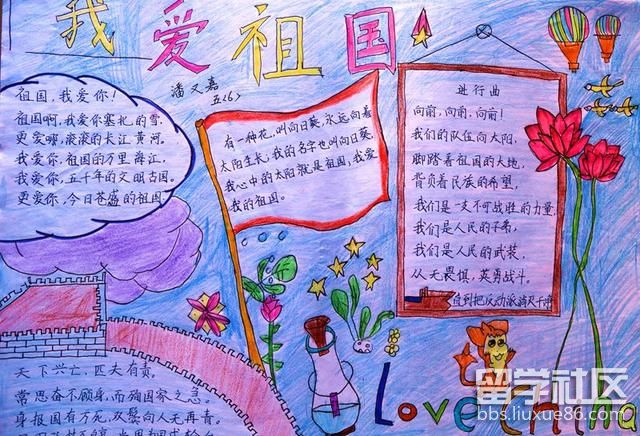 我爱祖国
潘又嘉
五〈6〉
祖国,我爱你!
祖国啊,我爱你塞北的雪。
更爱哪,滚滚的长江黄河。
我爱你,祖国的万里江,
我爱你,五千年的文明古国。
更爱你,今日盛的祖国
有一种花,叫向日葵,永远向着
太阳生长,我的名字也叫向日葵。
我心中的太阳就是祖国,我爱
我的祖国。
进行曲
向前,向前,向前!
我们的队伍向太阳,
脚踏着祖国的大地,
背负着民族的希望,
我们是一支不可战胜的力量,
我们是人民的子弟,
我们是人民的武装,
从无畏惧,英勇战斗。
直到把反动派消灭干净
天下兴亡,匹夫有责。
常思奋不顾身,而殉国家之急。
身报国有万死,双鬓向人无再青。
Love China
留学社区
bbs.liuxue86.com